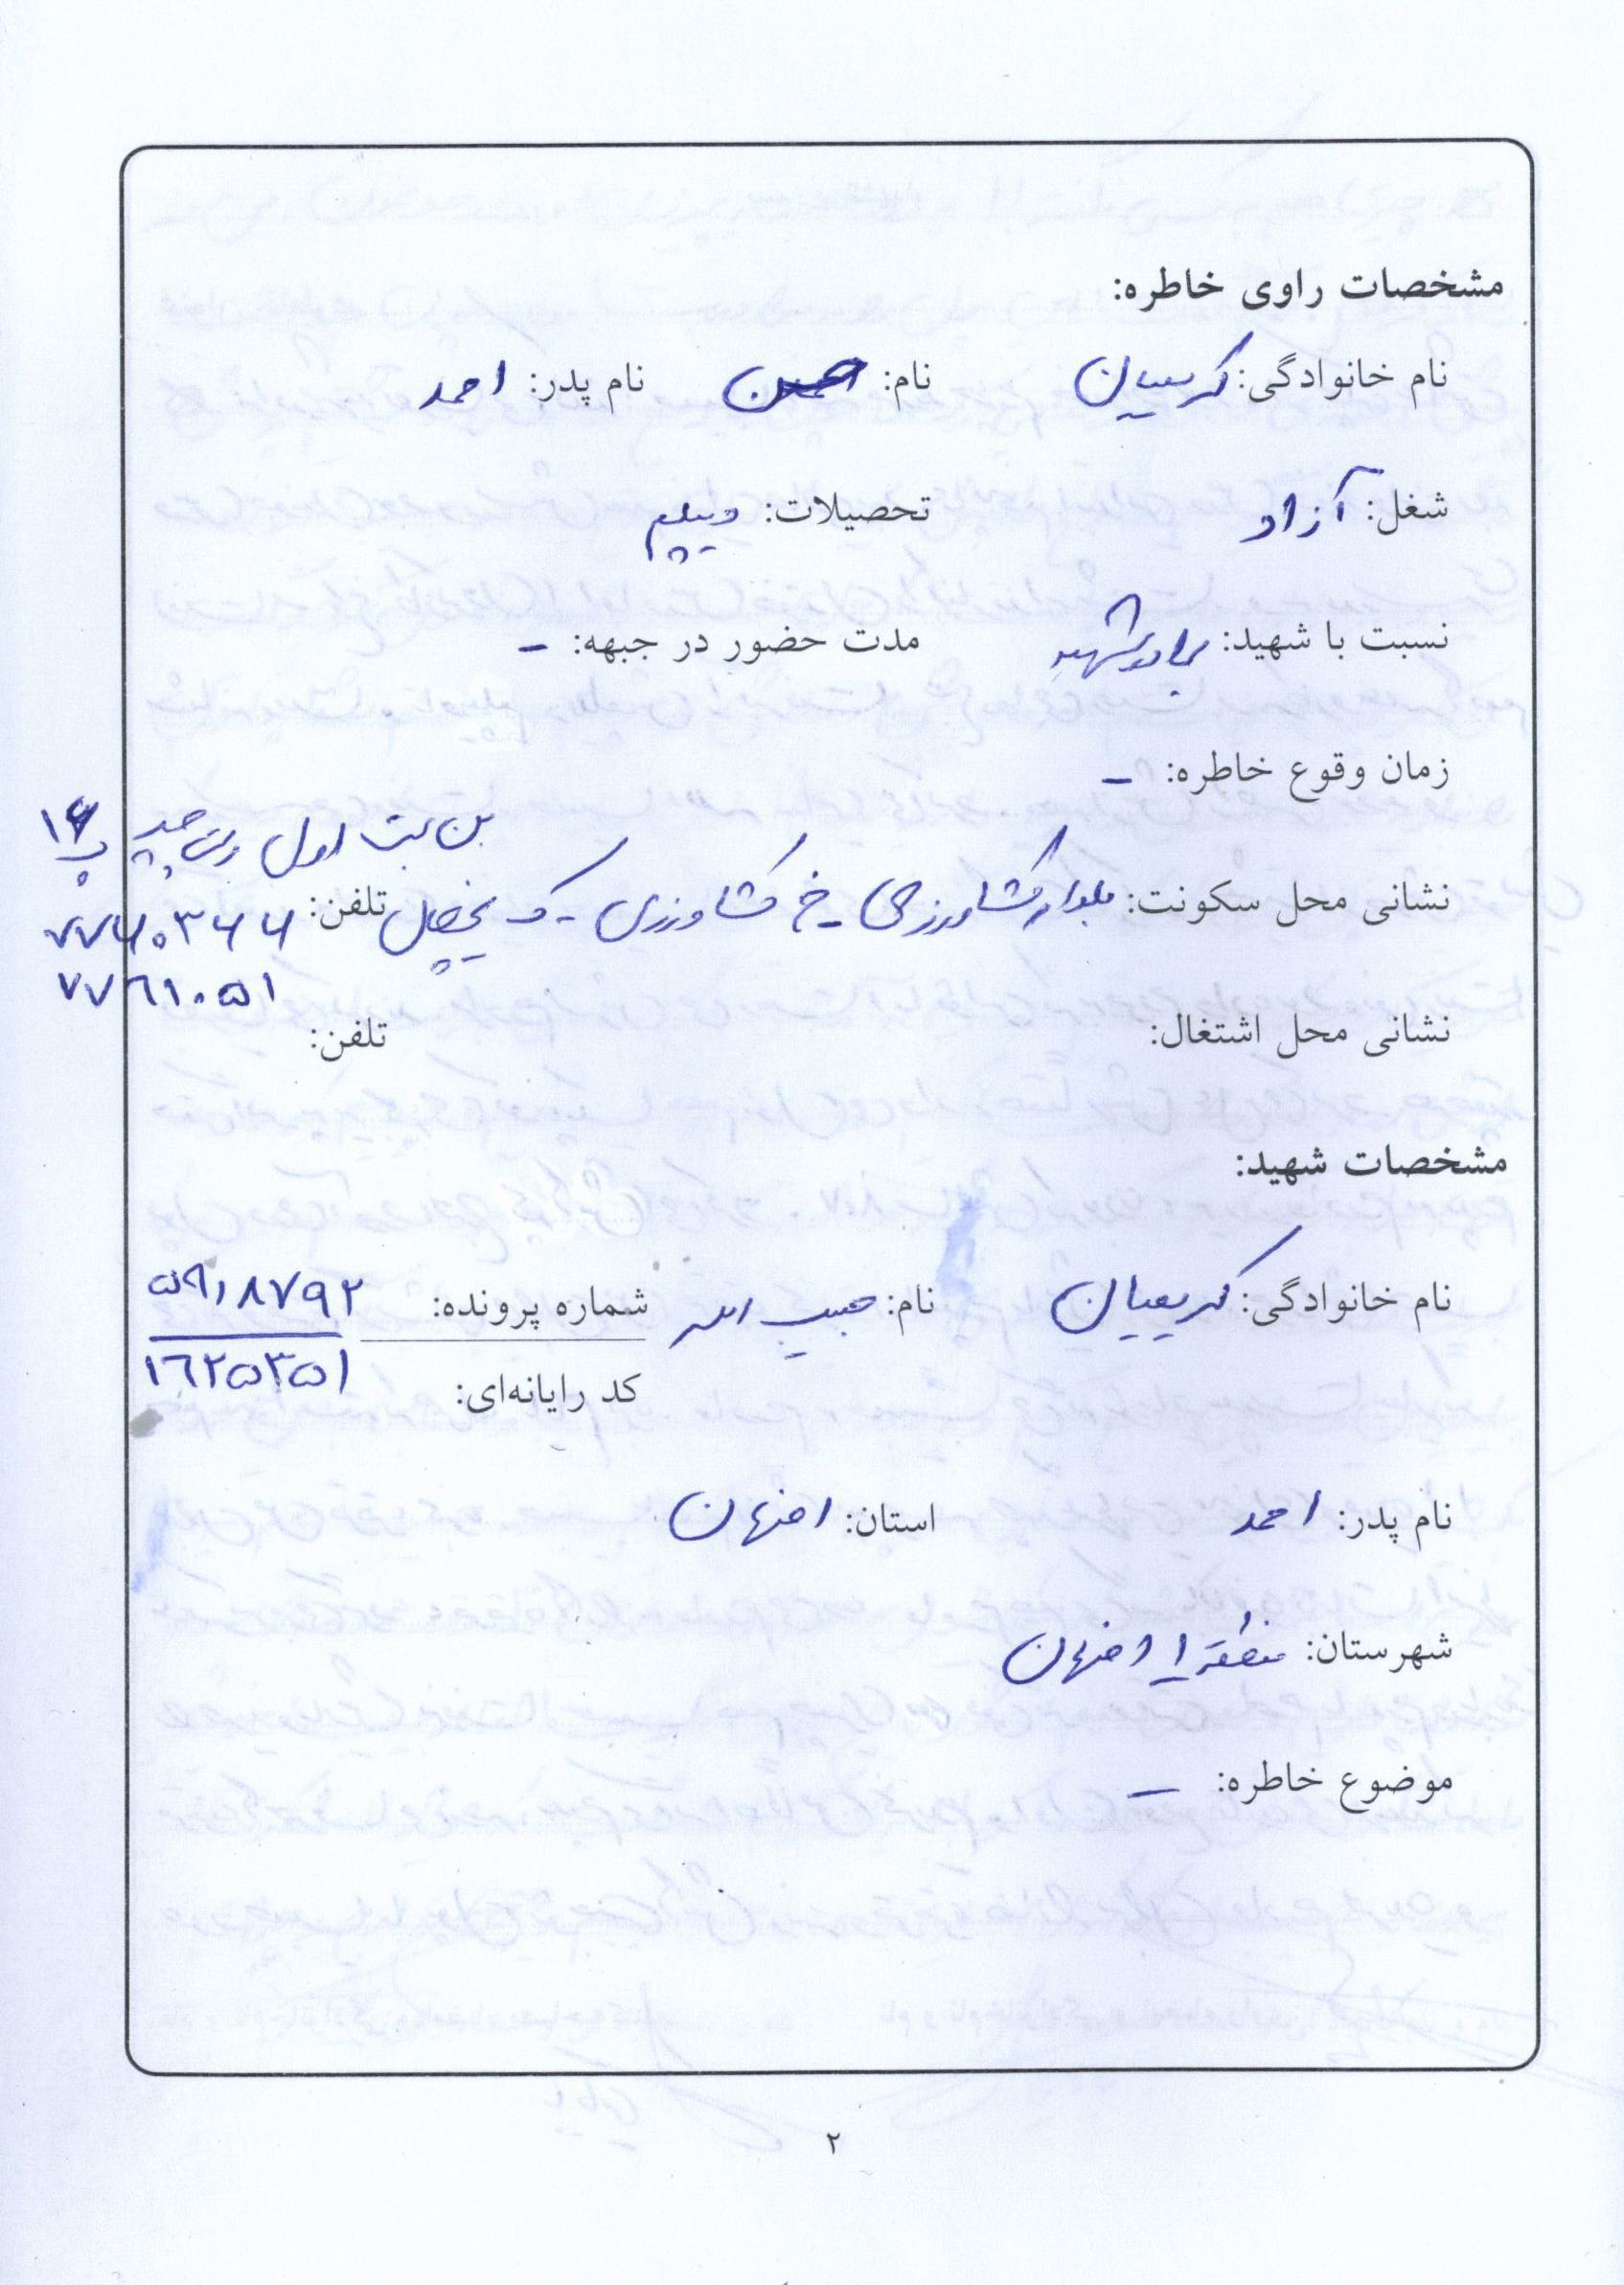 مشخصات راوی خاطره:
نام خانوادگی: کریمیان نام: حسن نام پدر: احمد
شغل: آزاد تحصیلات: دیپلم
نسبت با شهید: برادر شهید مدت حضور در جبهه: -
زمان وقوع خاطره: -
بن بست اول دست چپ پ ۱۶
نشانی محل سکونت: بلوار کشاورزی - خ کشاورزی - ک یخچال تلفن: ۷۷۶۰۳۶۶
۷۷۶۱۰۵۱
نشانی محل اشتغال: تلفن:
مشخصات شهید:
نام خانوادگی: کریمیان نام: حبیب اله شماره پرونده: ۵۹۱۸۷۹۲
کد رایانه‌ای: ۱۶۲۵۳۵۱
نام پدر: احمد استان: اصفهان
شهرستان: منطقه ۱ اصفهان
موضوع خاطره: -
۲